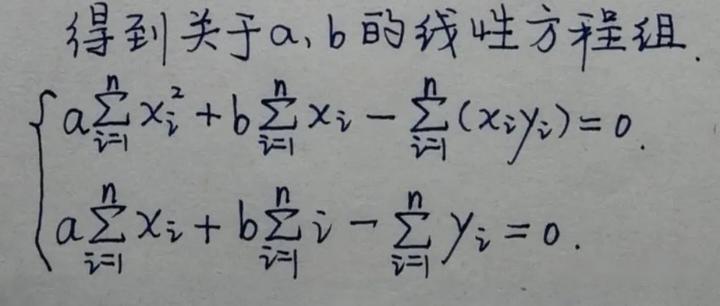 得到关于a,b的线性方程组.
{ a∑_{i=1}^{n} x_i^2 + b∑_{i=1}^{n} x_i - ∑_{i=1}^{n} (x_i y_i) = 0.
a∑_{i=1}^{n} x_i + b∑_{i=1}^{n} i - ∑_{i=1}^{n} y_i = 0.